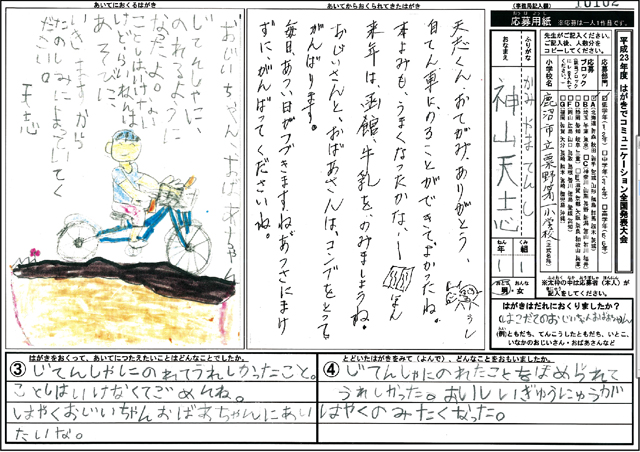 (事務局記入欄)
10102
応募用紙
※応募は一人1作品です。
平成23年度 はがきでコミュニケーション全国発表大会
先生がご記入ください。
ご記入後、人数分を
コピーしてください。
応募部門
小学校名
鹿沼市立粟野第一小学校
(正式名称)
ふりがな
かみやま てんし
おなまえ
神山天士心
1
年
1
組
男・女
※太枠の中は応募者(本人)が
記入をしてください。
はがきはだれにおくりましたか?
はこだてのおじいちゃんおばあちゃん
(例)ともだち、てんこうしたともだち、いとこ、
いなかのおじいさん・おばあさんなど
あいてからおくられてきたはがき
天志くん、おてがみ、ありがとう、
自てん車に、のることができて、よかったね。
本よみも、うまくなったかな、
来年は、函館牛乳を、のみましょうね。
おじいさんと、おばあさんは、コンブをとって
がんばります。
毎日あつい日がつづきますね、あつさにまけ
ずに、がんばってくださいね。
あいてにおくるはがき
おじいちゃん、おばあちゃん
じてんしゃに
のれるように
なったよ。
ことしはいけな
いけどらいねんは
あそびに
いきますから
たのしみにまっていてく
ださい。
天志
③ はがきをおくって、あいてにつたえたいことはどんなことでしたか。
じてんしゃにのれてうれしかったこと。
ことしはいけなくてごめんね。
はやくおじいちゃんおばあちゃんにあい
たいな。
④ とどいたはがきをみて(よんで)、どんなことをおもいましたか。
じてんしゃにのれたことをほめられて
うれしかった。おいしいぎゅうにゅうが
はやくのみたくなった。